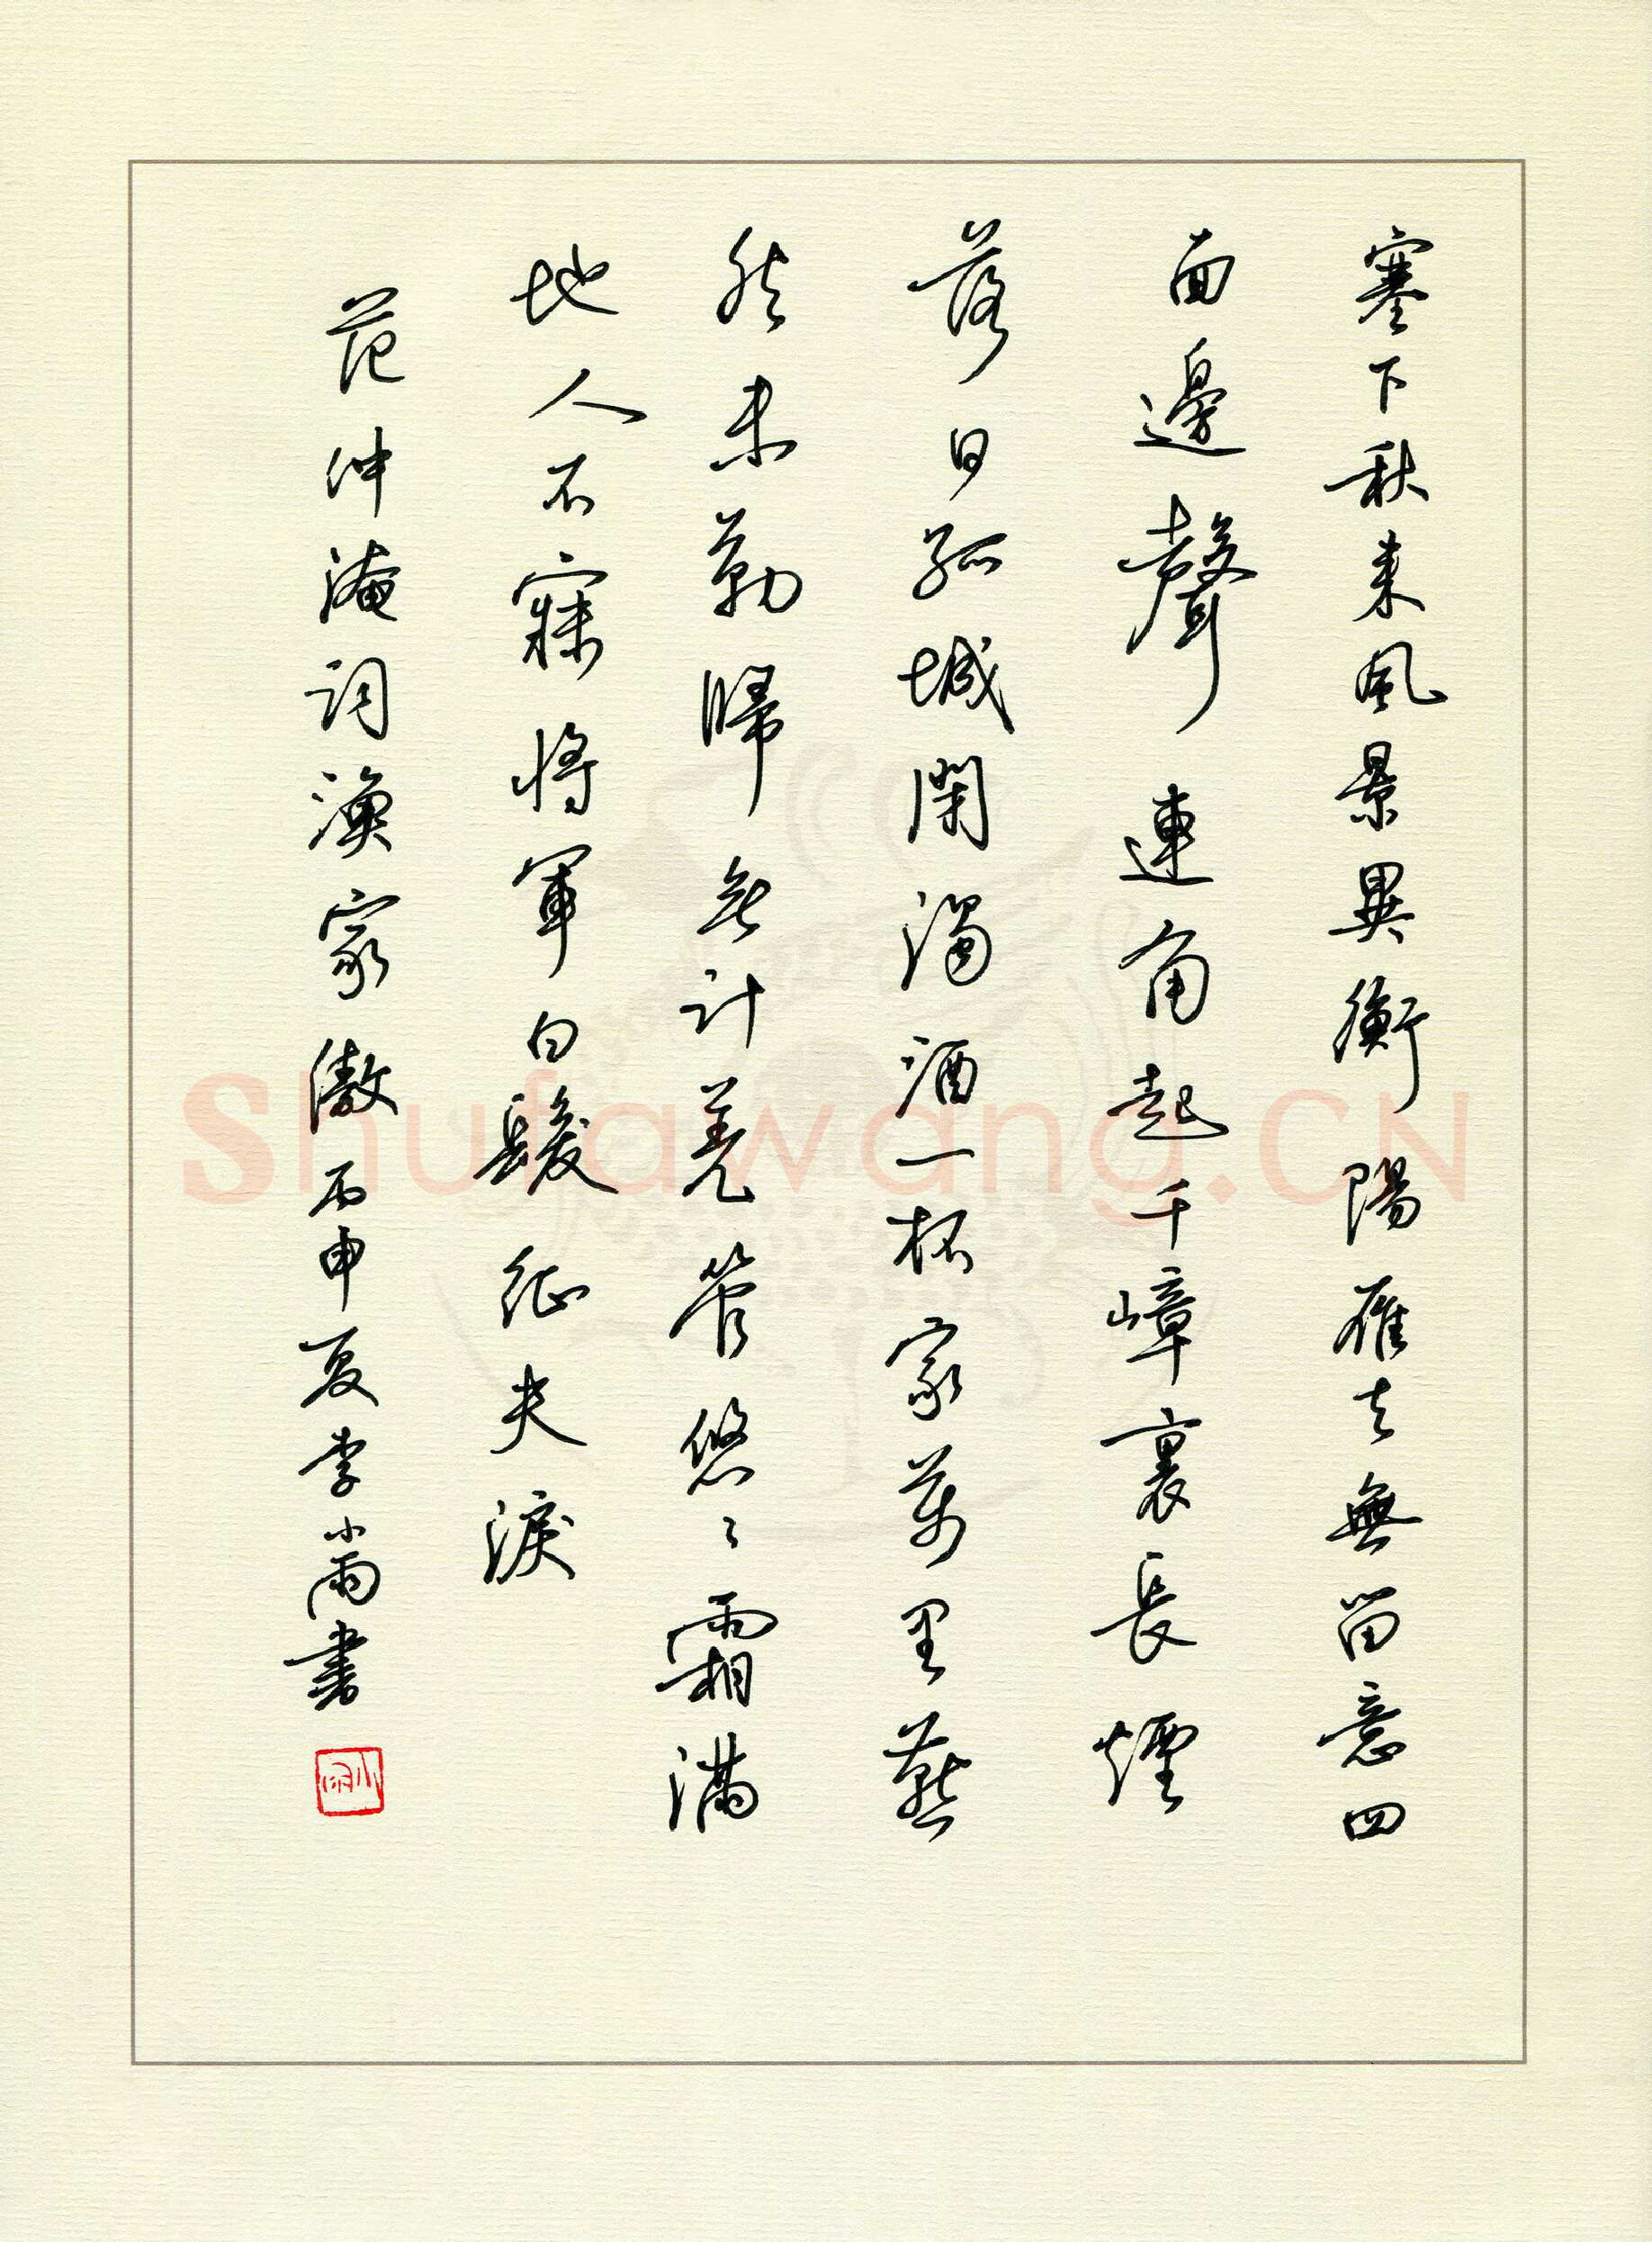 塞下秋来風景異衡陽雁去無留意四
面邊聲連角起千嶂裏長煙
落日孤城閉濁酒一杯家萬里燕
然未勒歸无計羌管悠々霜滿
地人不寐將軍白髮征夫淚
范仲淹詞漁家傲丙申夏李小雨書
Shufawang.CN